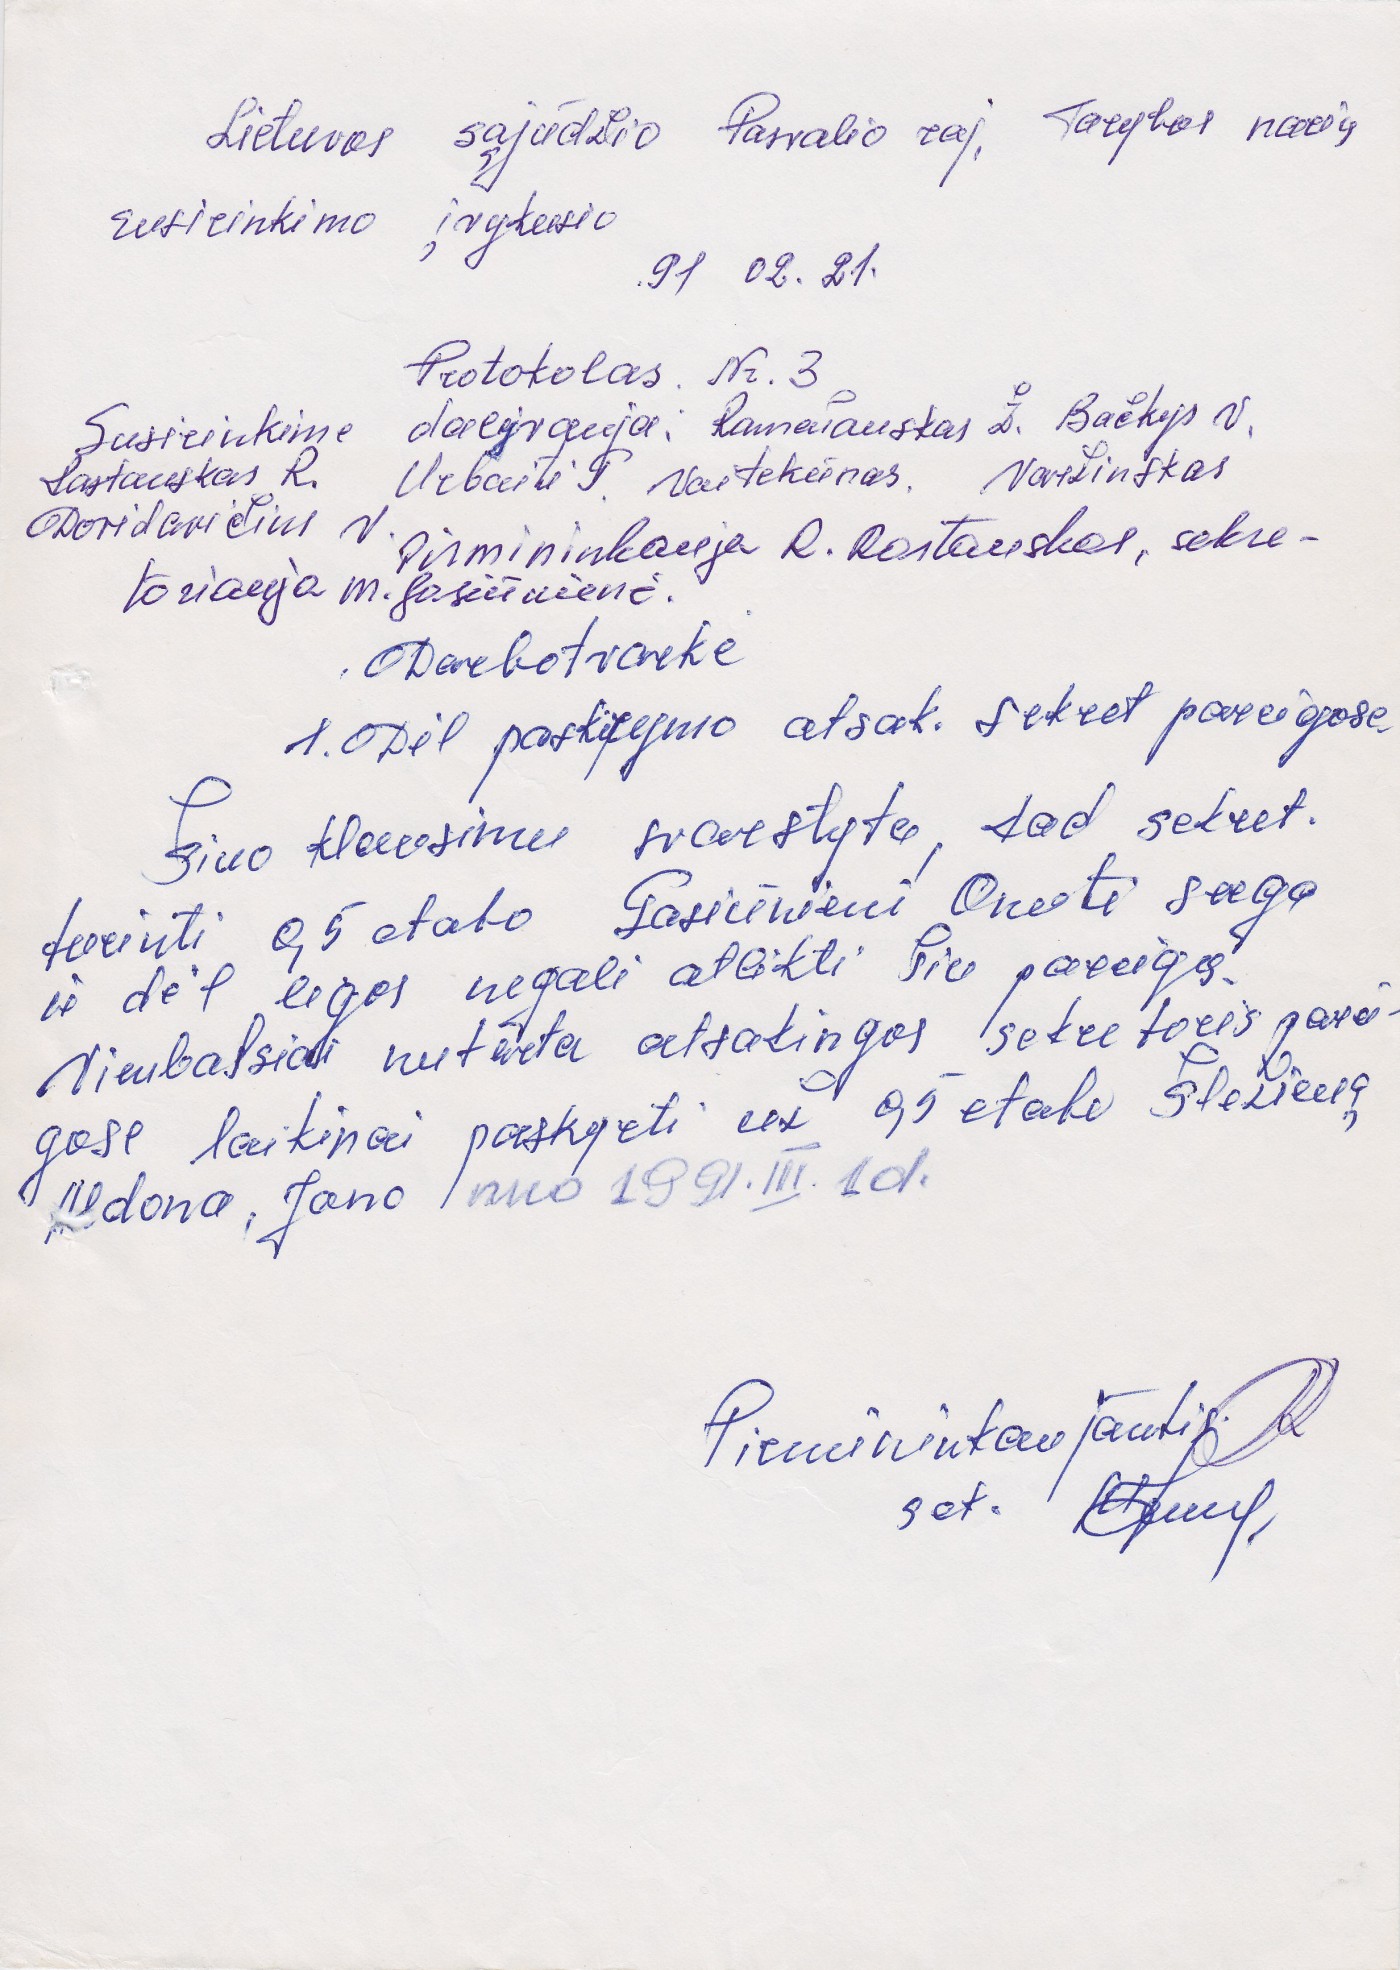 Lietuvos sąjūdžio Pasvalio raj. Tarybos narių
susirinkimo įvykusio
91 02. 21.
Protokolas. Nr. 3
Susirinkime dalyvauja: Ramašauskas Ž. Bačkys V.
Rastauskas R. Urbaitė T. Vaitekūnas. Varžinskas
Dovidavičius V. Pirmininkauja R. Rastauskas, sekre-
toriauja M. Gasiūnienė.
Darbotvarkė
1. Dėl paskyrymo atsak. sekret pareigose
Šiuo klausimu svarstyta, kad sekret.
turinti 0,5 etato Gasiūnienė Onutė serga
ir dėl ligos negali atlikti šių pareigų.
Vienbalsiai nutarta atsakingos sekretorės parei-
gose laikinai paskyrti už 0,5 etato Šležieną
Aldona, Jono nuo 1991. III. 1 d.
Pirmininkaujantis
sek.